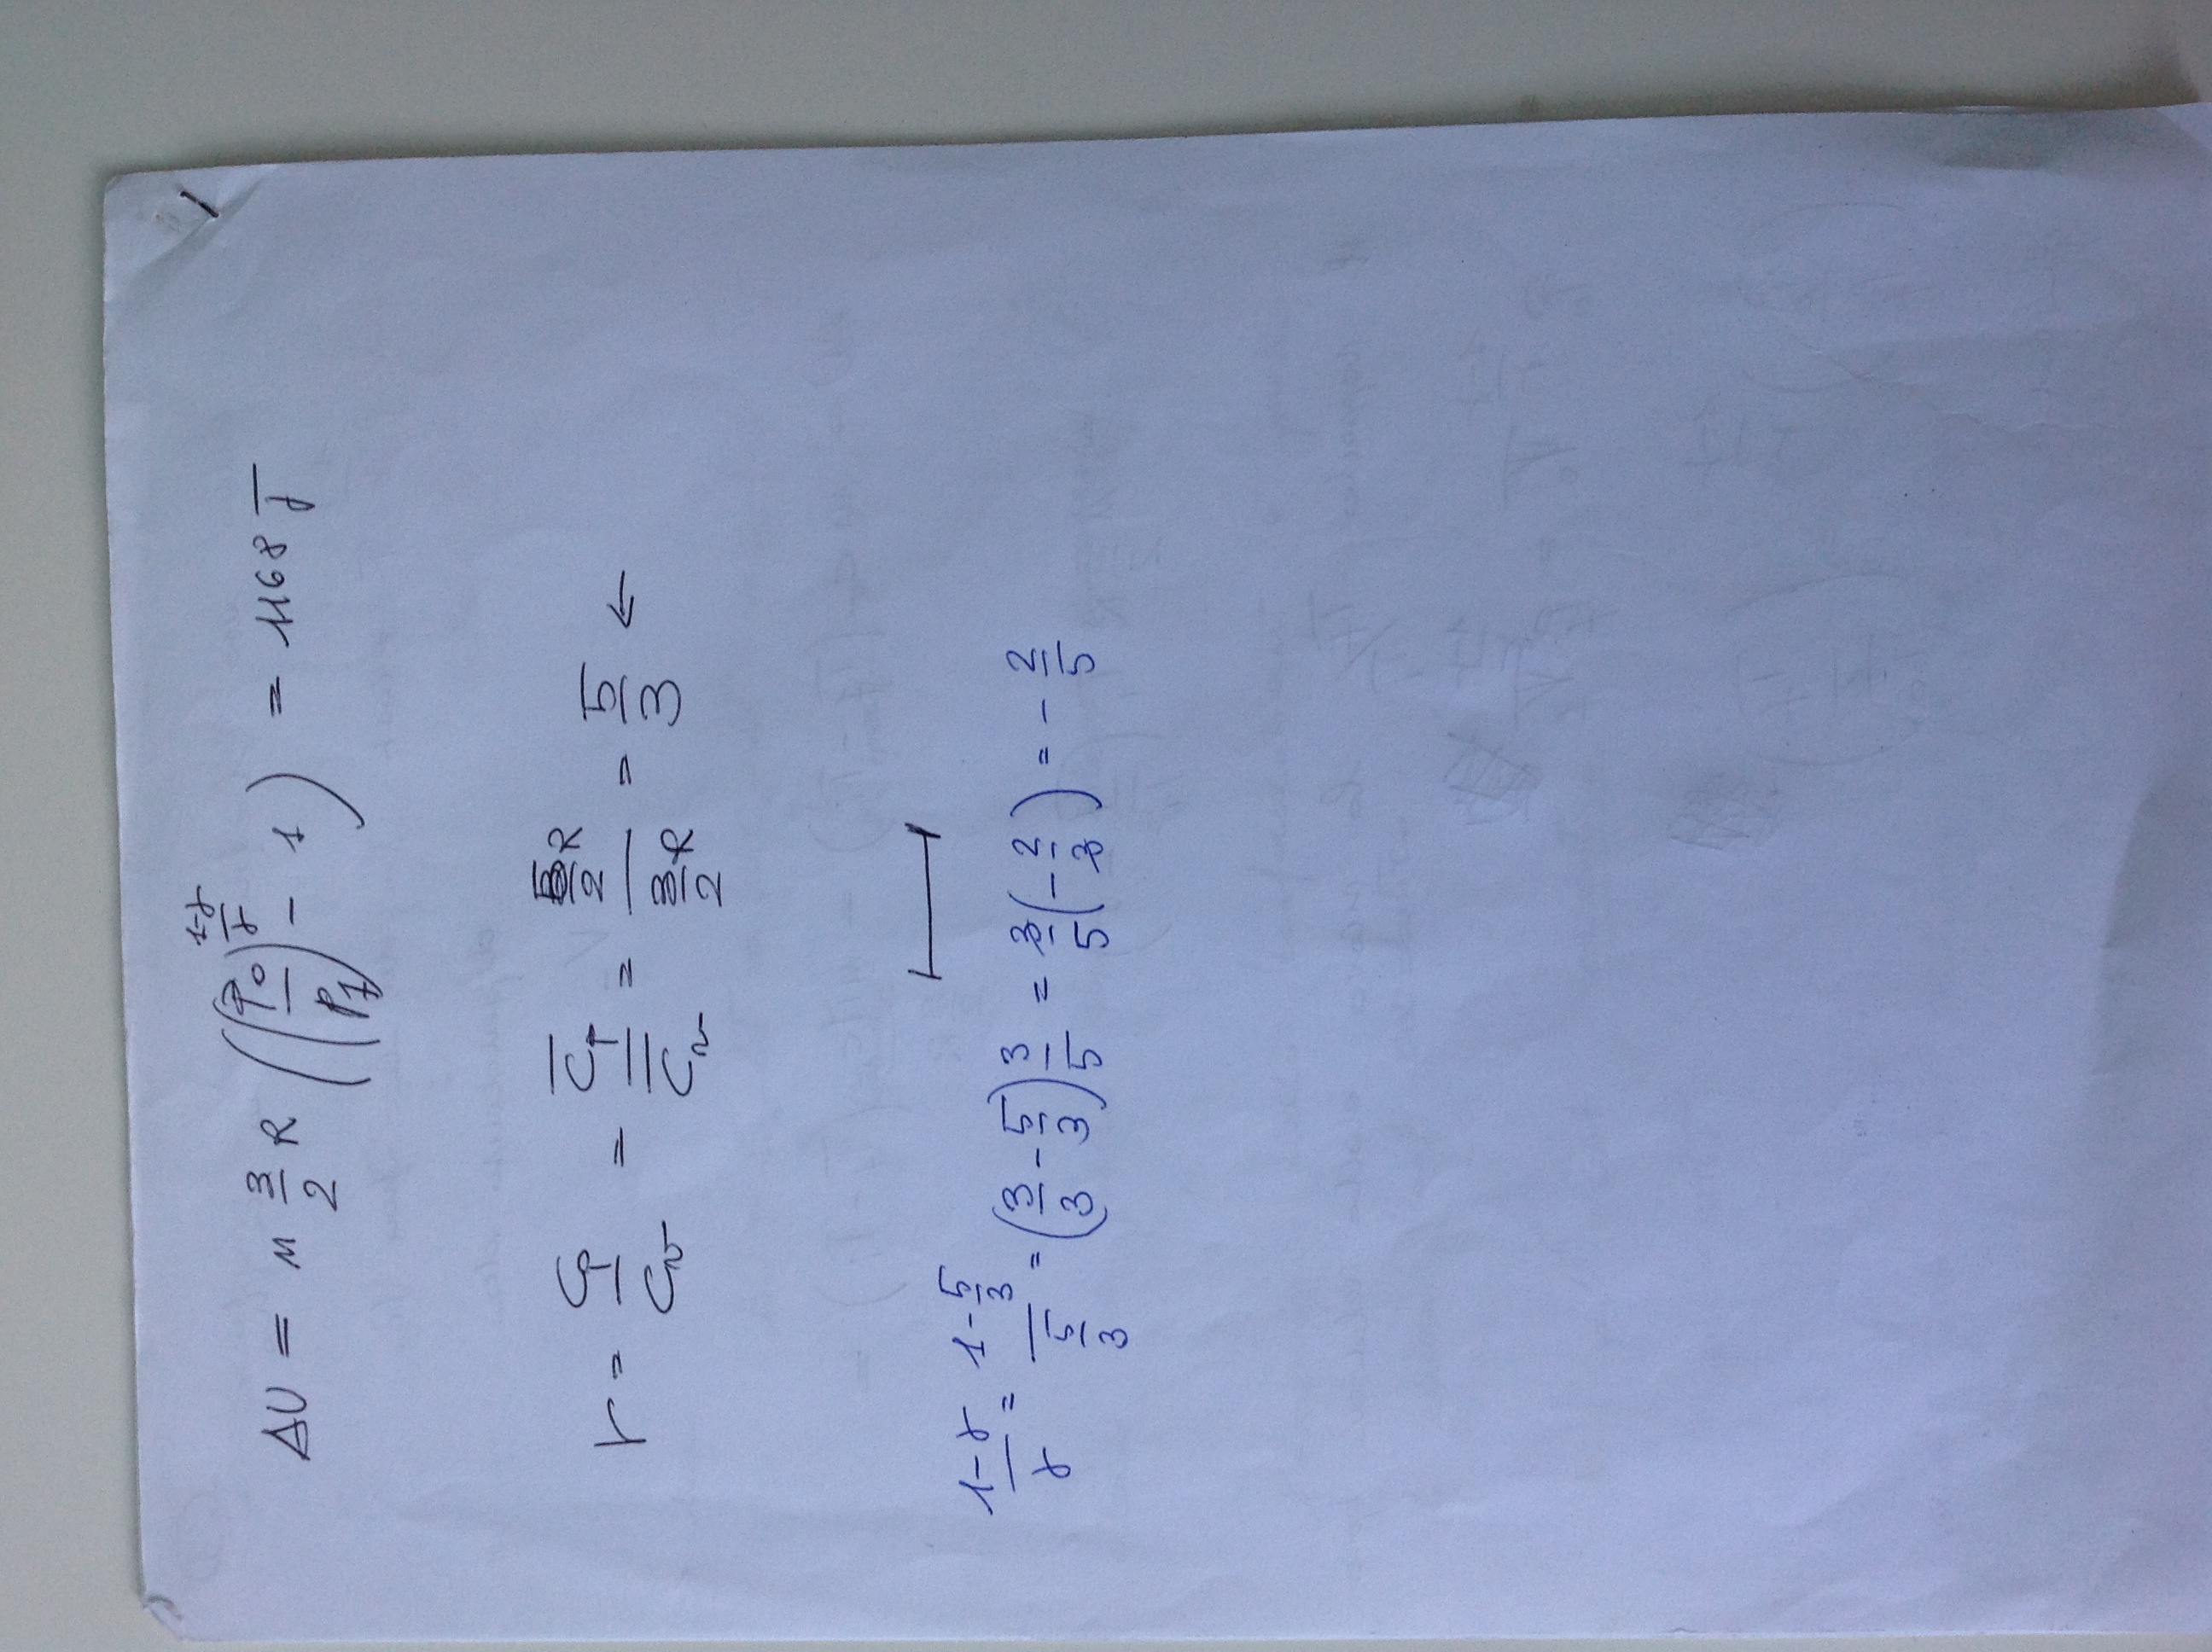 ΔU = n 3/2 R ((p₀/p_f)^((1-γ)/γ) - 1) = 1168 J
γ = Cp/Cv = C̅p/C̅v = (5/2 R)/(3/2 R) = 5/3 ←
(1-γ)/γ = (1 - 5/3)/(5/3) = (3/3 - 5/3) 3/5 = 3/5 (- 2/3) = - 2/5